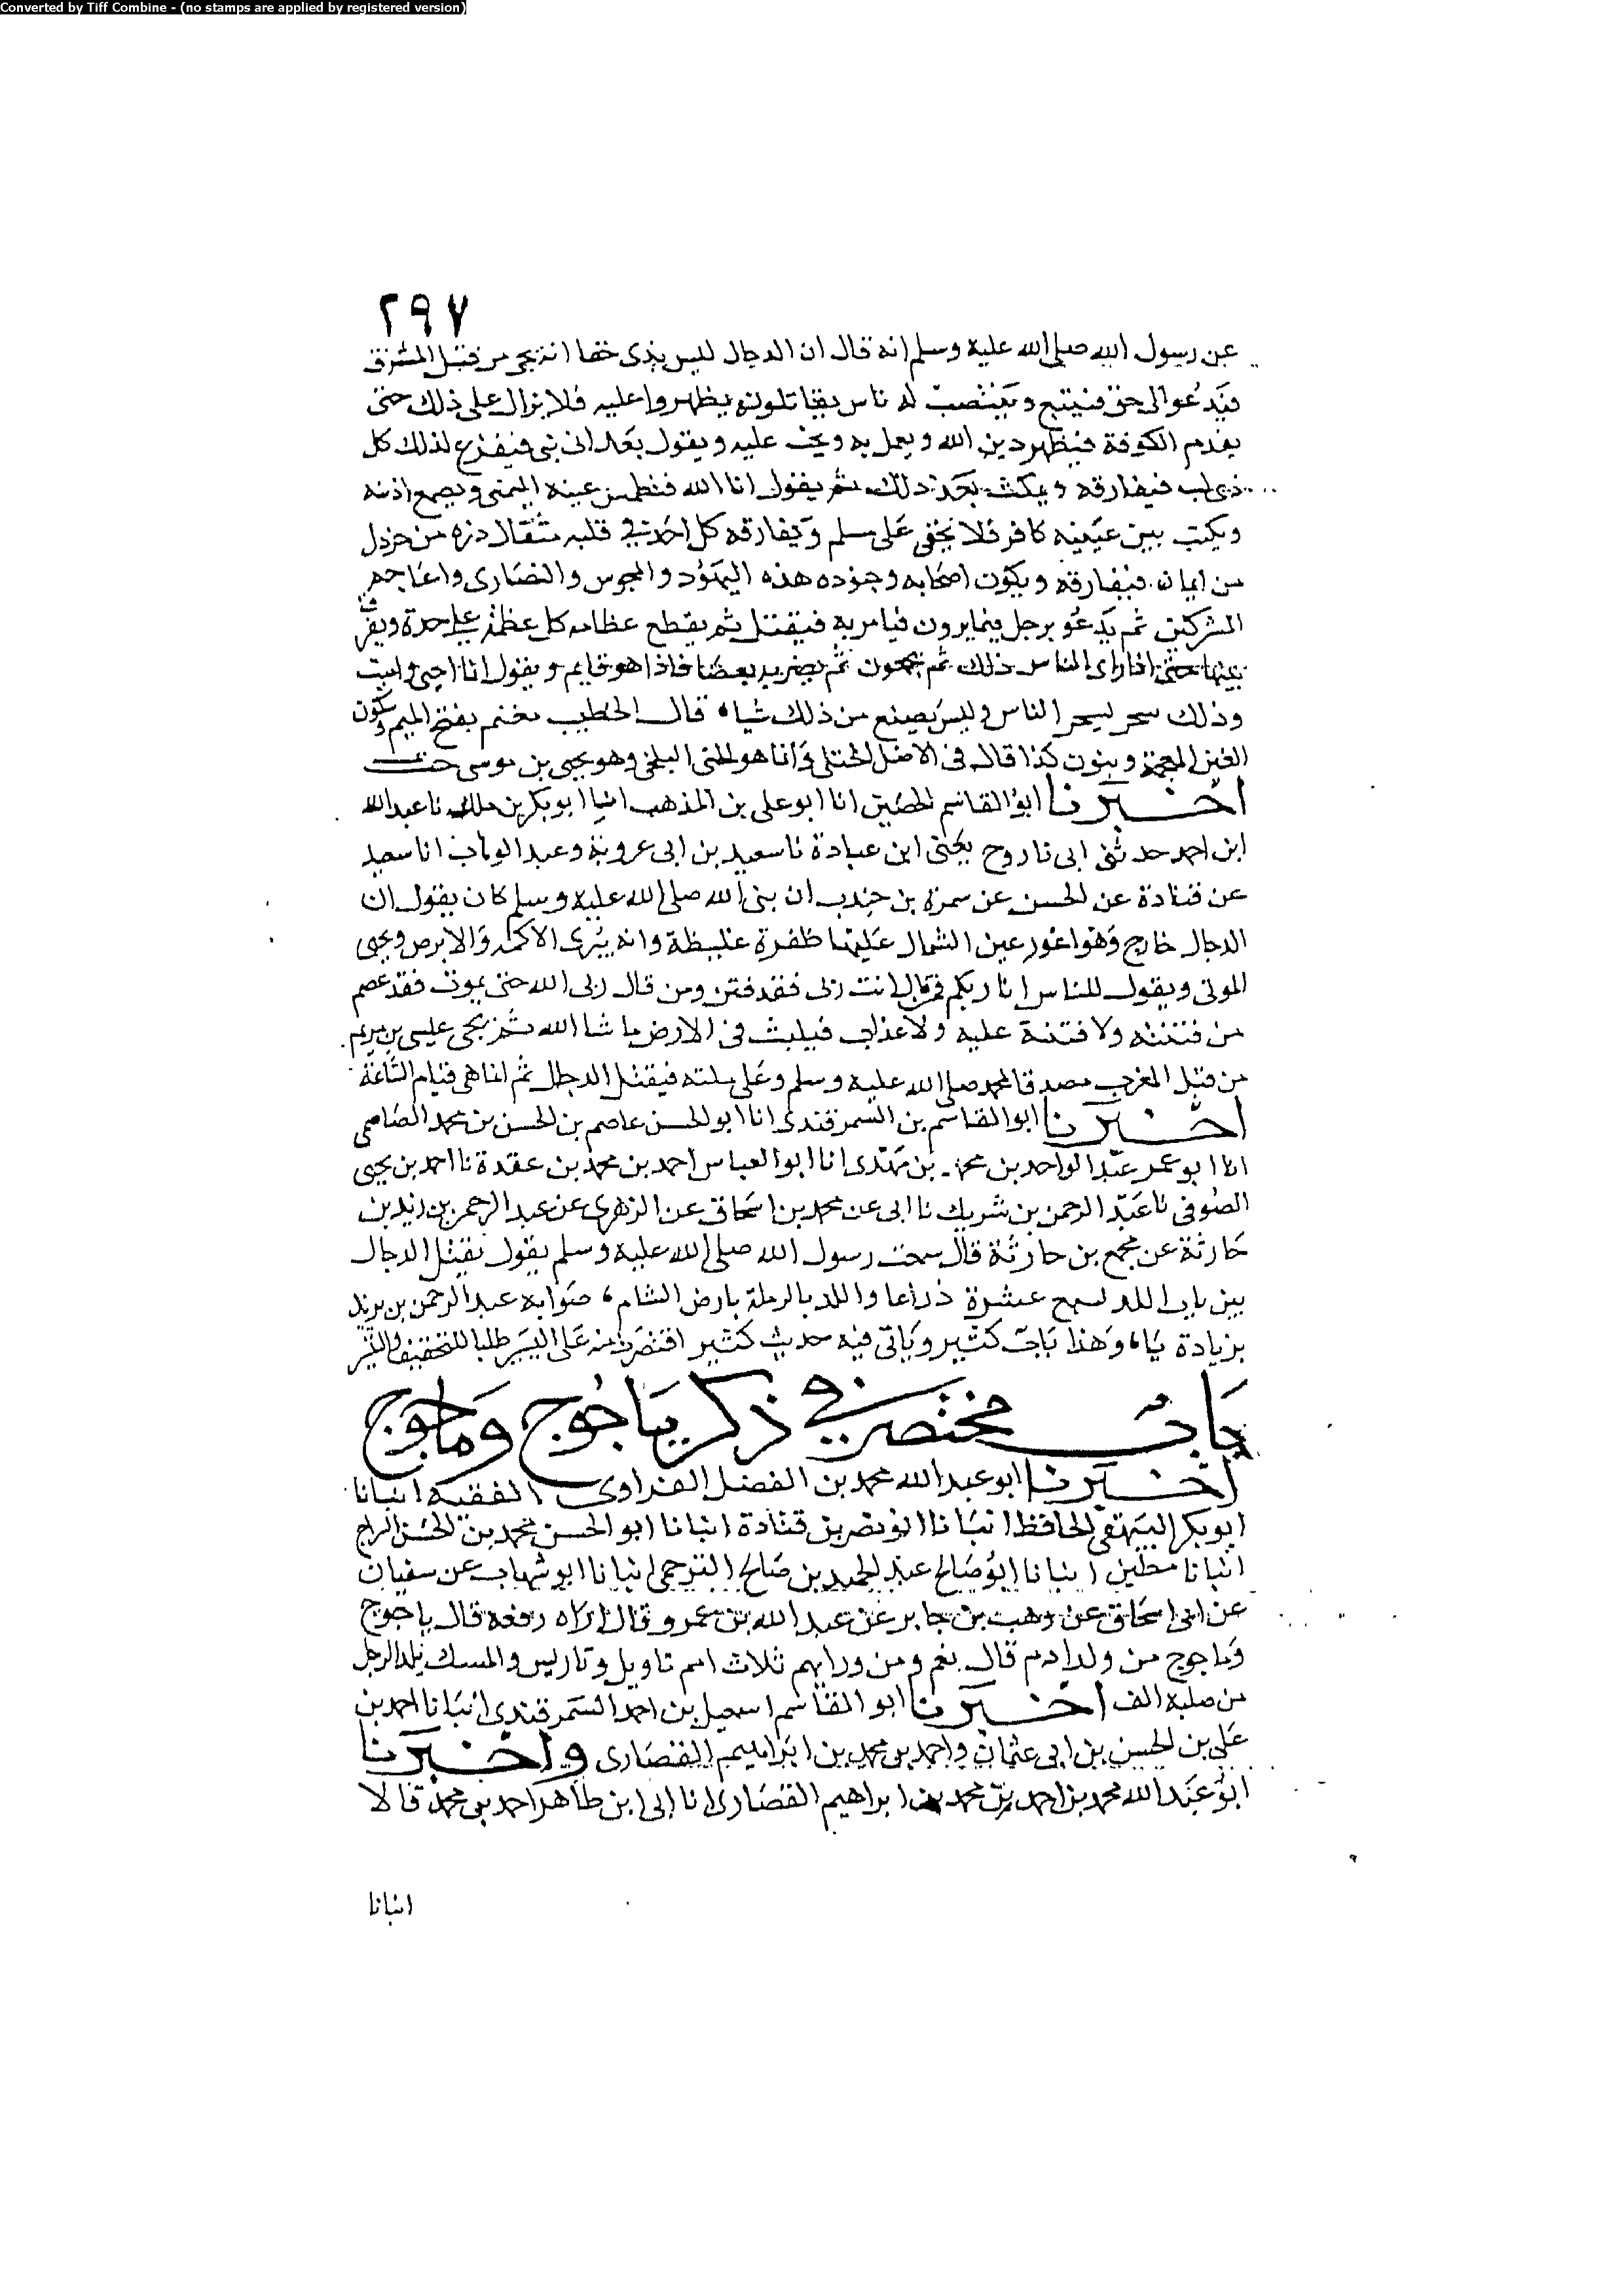 Converted by Tiff Combine - (no stamps are applied by registered version)
٢٩٧
عن رسول الله صلى الله عليه وسلم انه قال ان الدجال ليس بذى خفا انه يجى من قبل المشرق
فيدعو الى حق فيتبع وينتصب له ناس يقاتلونه يظهروا عليه فلا يزال على ذلك حتى
يقدم الكوفة فيظهر دين الله ويعمل به ويحث عليه ويقول بعد انى نبى فيفزع لذلك كل
ذى لب فيفارقه ويمكث بعد ذلك ثم يقول انا الله فتطمس عينه اليمنى ويصمع اذنه
ويكتب بين عينيه كافر فلا يخفى على مسلم ويفارقه كل احد فى قلبه مثقال ذره من خردل
من ايمان فيفارقه ويكون اصحابه وجنوده هذه اليهود والمجوس والنصارى واعاجم
المشركين ثم يدعو برجل فيما يرون فيامر به فيقتل ثم يقطع عظامه كل عظم على حدة ويفرق
بينها حتى اذا راى الناس ذلك ثم يجمعون ثم يضرب بعضا فاذا هو قايم ويقول انا احيى واميت
وذلك سحر يسحر الناس وليس يصنع من ذلك شيا قال الخطيب مغنم بفتح الميم وسكون
الغين المعجمة وبنون كذا قال فى الاصل الختلى وانا هو الختى البلخى وهو يحيى بن موسى خت
اخبرنا ابو القاسم الحصين انا ابو على بن المذهب انبا ابو بكر بن ملك نا عبد الله
ابن احمد حدثنى ابى نا روح يعنى ابن عبادة نا سعيد بن ابى عروبة وعبد الوهاب انا سعيد
عن قتادة عن الحسن عن سمرة بن جندب ان نبى الله صلى الله عليه وسلم كان يقول ان
الدجال خارج وهو اعور عين الشمال عليها ظفرة غليظة وانه يبرى الاكمه والابرص ويحيى
الموتى ويقول للناس انا ربكم فمن قال انت ربى فقد فتن ومن قال ربى الله حتى يموت فقد عصم
من فتنته ولا فتنة عليه ولا عذاب فيلبث فى الارض ما شا الله ثم يجى عيسى بن مريم
من قبل المغرب مصدقا لمحمد صلى الله عليه وسلم وعلى ملته فيقتل الدجال ثم انما هى قيام الساعة
اخبرنا ابو القاسم بن السمرقندى انا ابو الحسن عاصم بن الحسن بن محمد العاصمى
انا ابو عمر عبد الواحد بن محمد بن مهدى انا ابو العباس احمد بن محمد بن عقدة نا احمد بن يحيى
الصوفى نا عبد الرحمن بن شريك نا ابى عن محمد بن اسحاق عن الزهرى عن عبد الرحمن بن زيد بن
حارثة عن مجمع بن حارثة قال سمعت رسول الله صلى الله عليه وسلم يقول يقتل الدجال
بين باب اللد لسبع عشرة ذراعا واللد بالرملة بارض الشام صوابه عبد الرحمن بن يزيد
بزيادة يا وهذا باب كثير وياتى فيه حديث كثير اقتصرت منه على اليسير طلبا للتخفيف والتيسير
باب مختصر فى ذكر ياجوج وماجوج
اخبرنا ابو عبد الله محمد بن الفضل الفراوى الفقيه انبانا
ابو بكر البيهقى الحافظ انبانا ابو نصر بن قتادة انبانا ابو الحسن محمد بن الحسن السراج
انبانا مطين انبانا ابو صالح عبد الحميد بن صالح البرجمى انبانا ابو شهاب عن سفيان
عن ابى اسحاق عن وهب بن جابر عن عبد الله بن عمرو قال اراه رفعه قال ياجوج
وماجوج من ولد ادم قال نعم ومن ورايهم ثلاث امم تاويل وتاريس والمسك يلد الرجل
من صلبه الف اخبرنا ابو القاسم اسمعيل بن احمد السمرقندى انبانا احمد بن
على بن الحسن بن ابى عثمان واحمد بن محمد بن ابراهيم القصارى واخبرنا
ابو عبد الله محمد بن احمد بن محمد بن ابراهيم القصارى انا ابى ابن طاهر احمد بن محمد قالا
انبانا